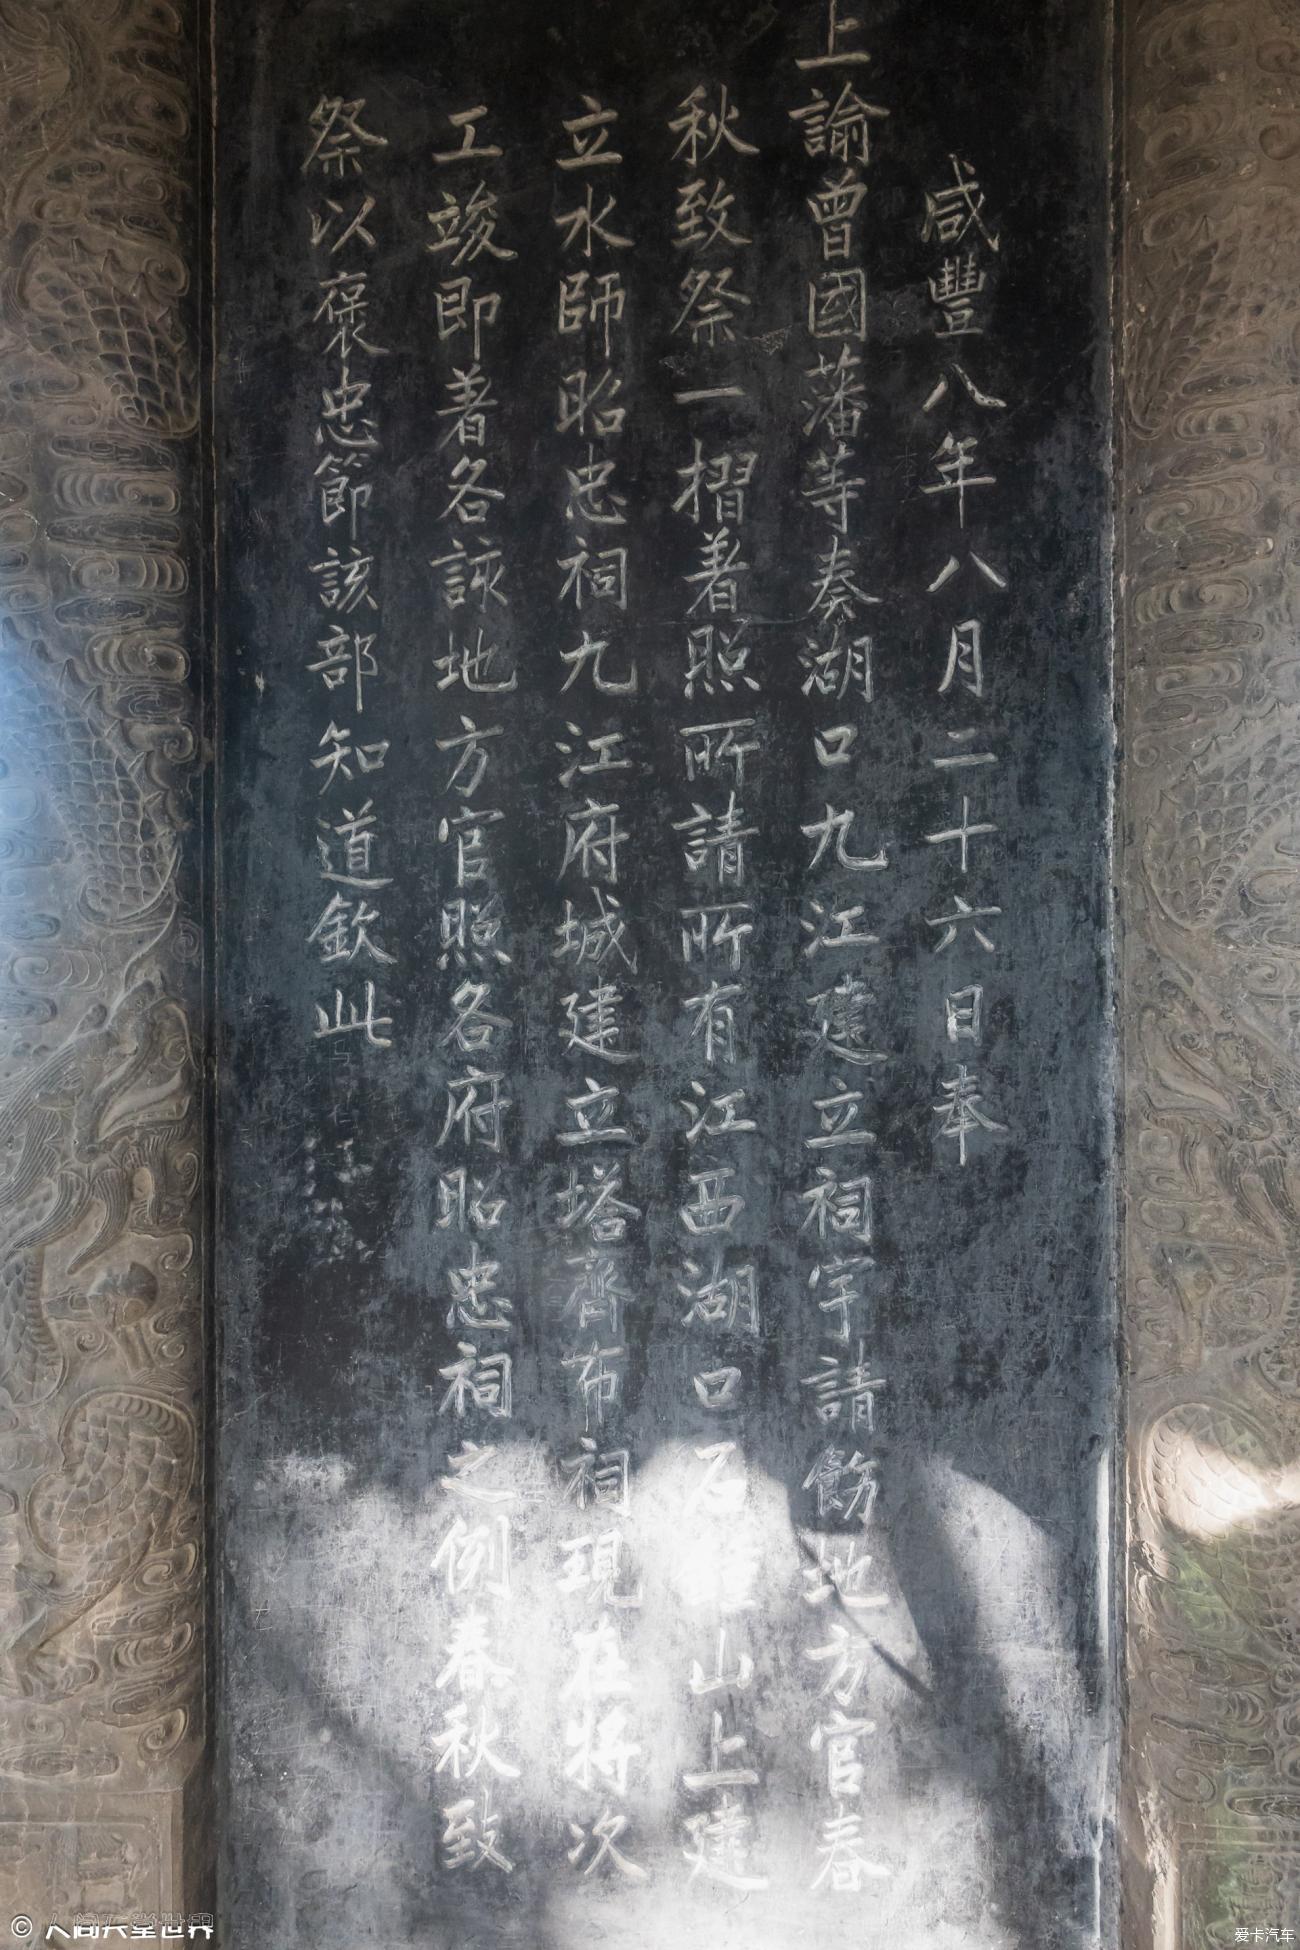 咸豐八年八月二十六日奉
上諭曾國藩等奏湖口九江建立祠宇請飭地方官春
秋致祭一摺著照所請所有江西湖口石鐘山上建
立水師昭忠祠九江府城建立塔齊布祠現在將次
工竣即着各該地方官照各府昭忠祠之例春秋致
祭以褒忠節該部知道欽此
© 人间天堂世界
爱卡汽车